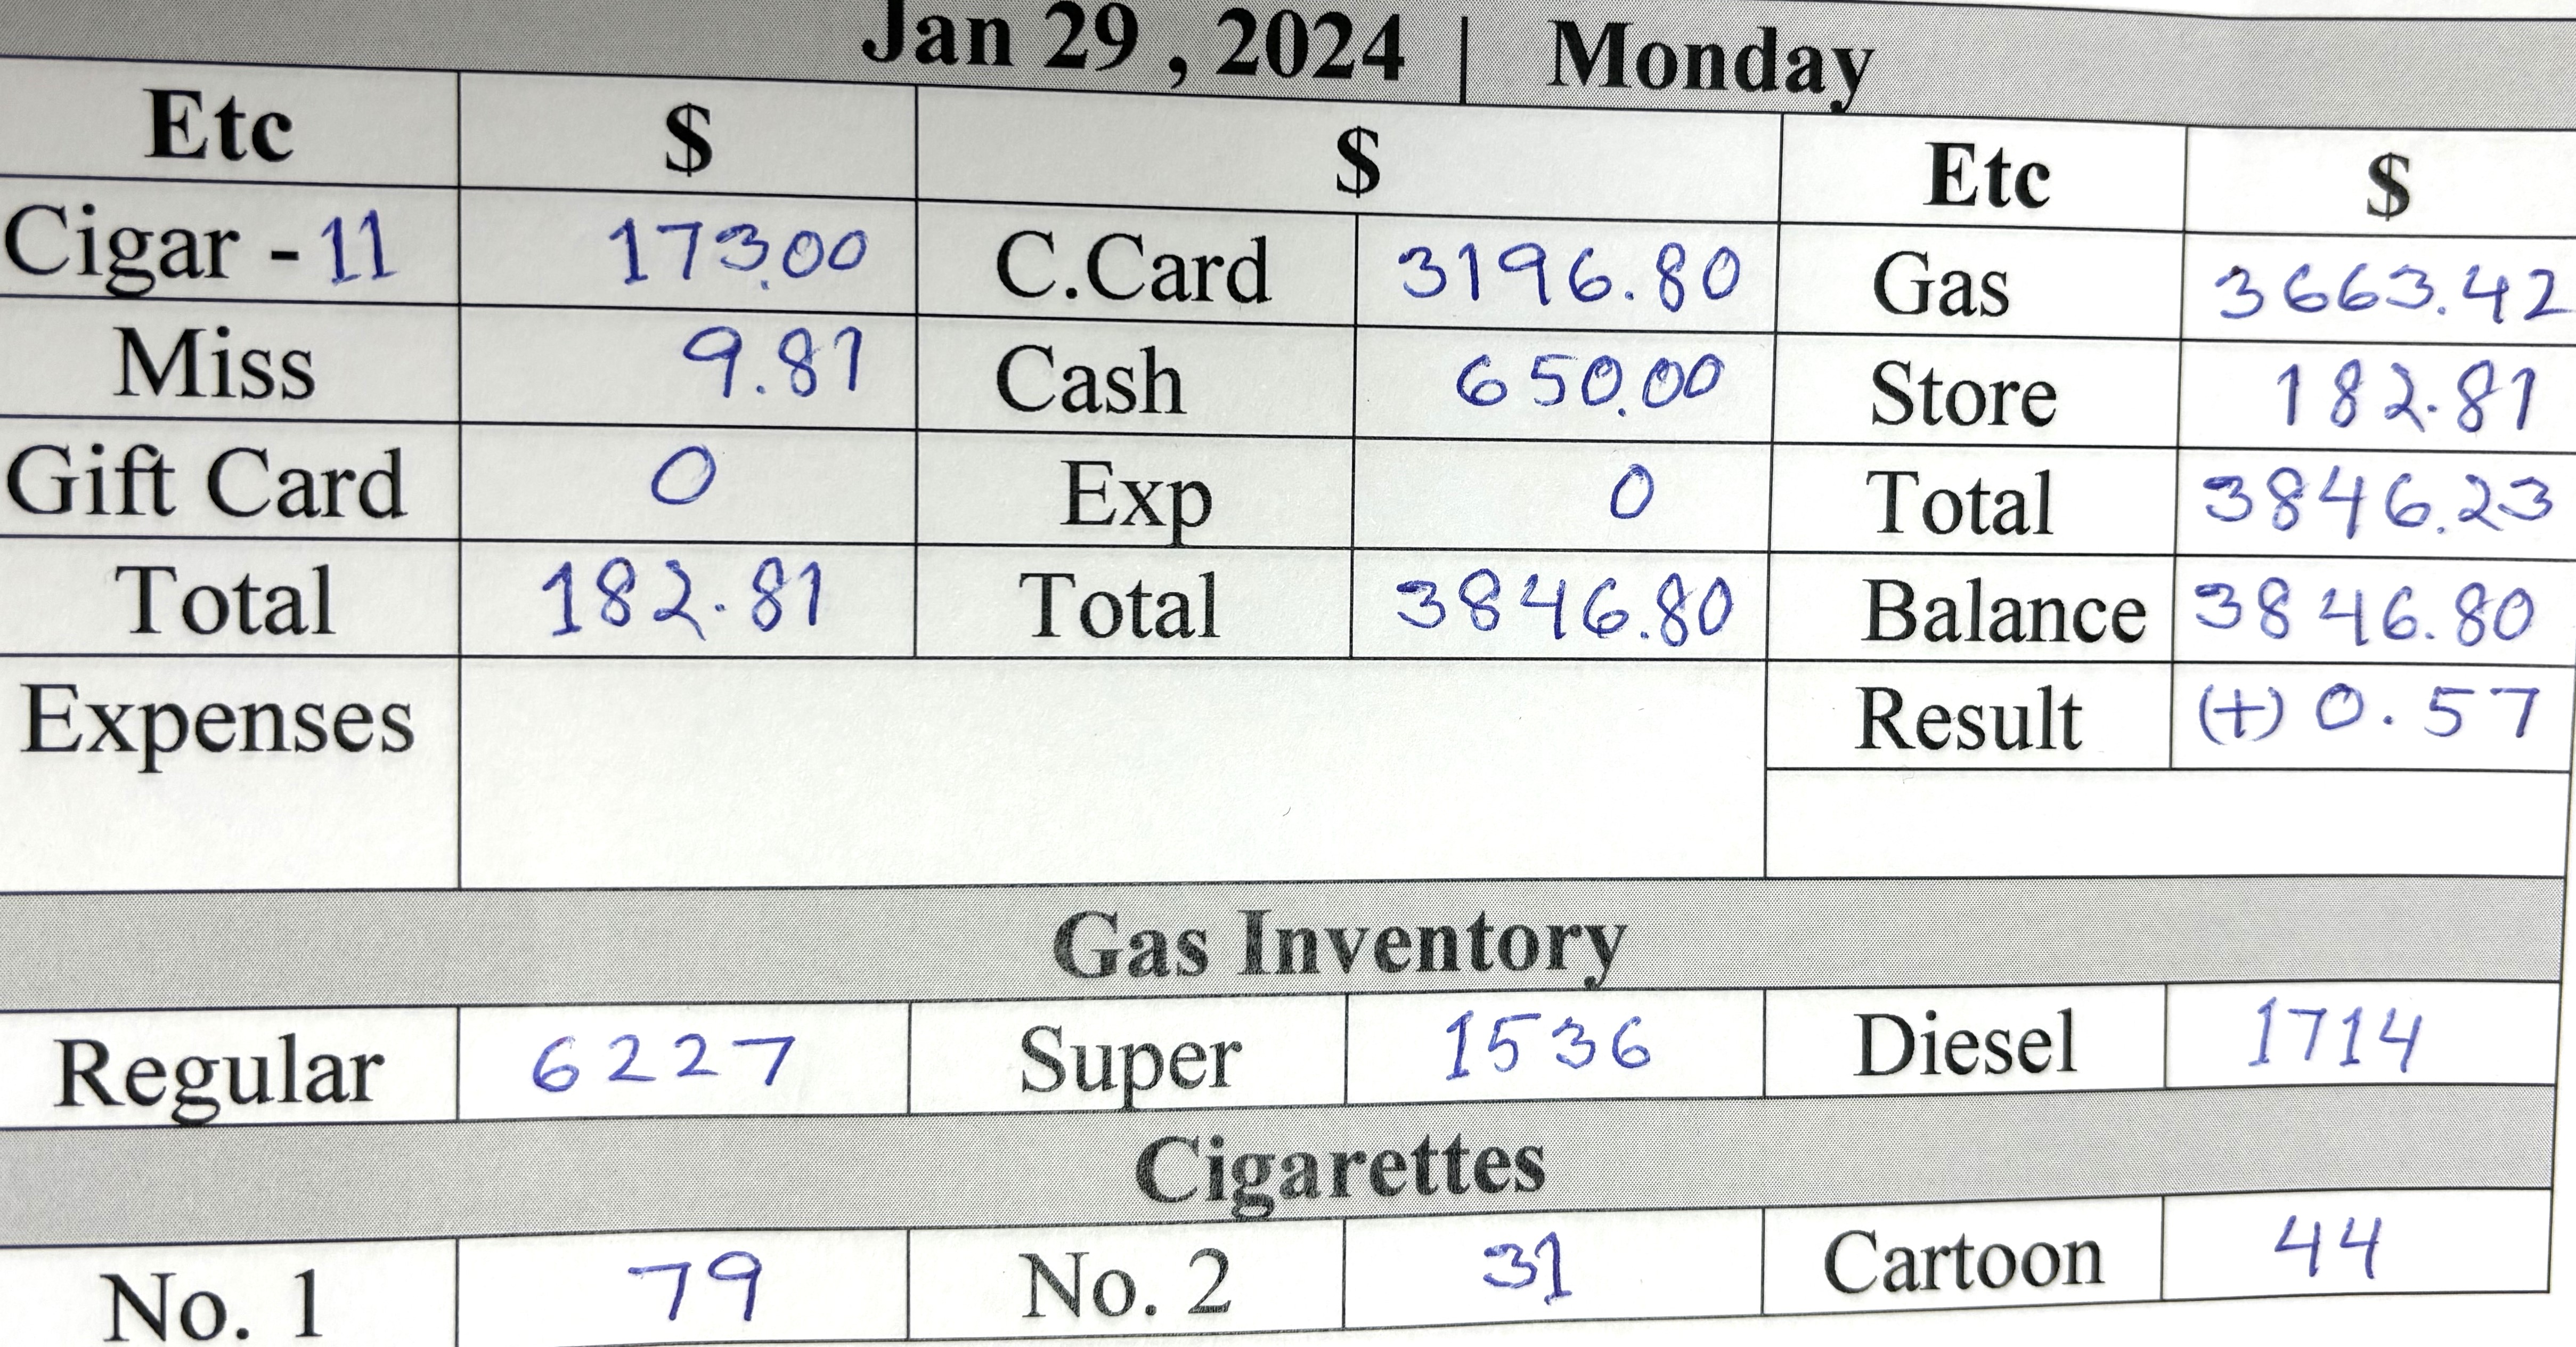 Jan 29 , 2024 | Monday
Etc $ $ Etc $
Cigar - 11 173.00 C.Card 3196.80 Gas 3663.42
Miss 9.81 Cash 650.00 Store 182.81
Gift Card 0 Exp 0 Total 3846.23
Total 182.81 Total 3846.80 Balance 3846.80
Expenses Result (+) 0.57
Gas Inventory
Regular 6227 Super 1536 Diesel 1714
Cigarettes
No. 1 79 No. 2 31 Cartoon 44